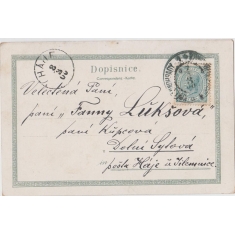 Dopisnice.
Correspondenz-Karte.
HÁJE
Veletctená Paní,
paní "Fanny Lukšová,"
paní Kupcová
Dolní Sytová
pošta Háje u Jilemnice.